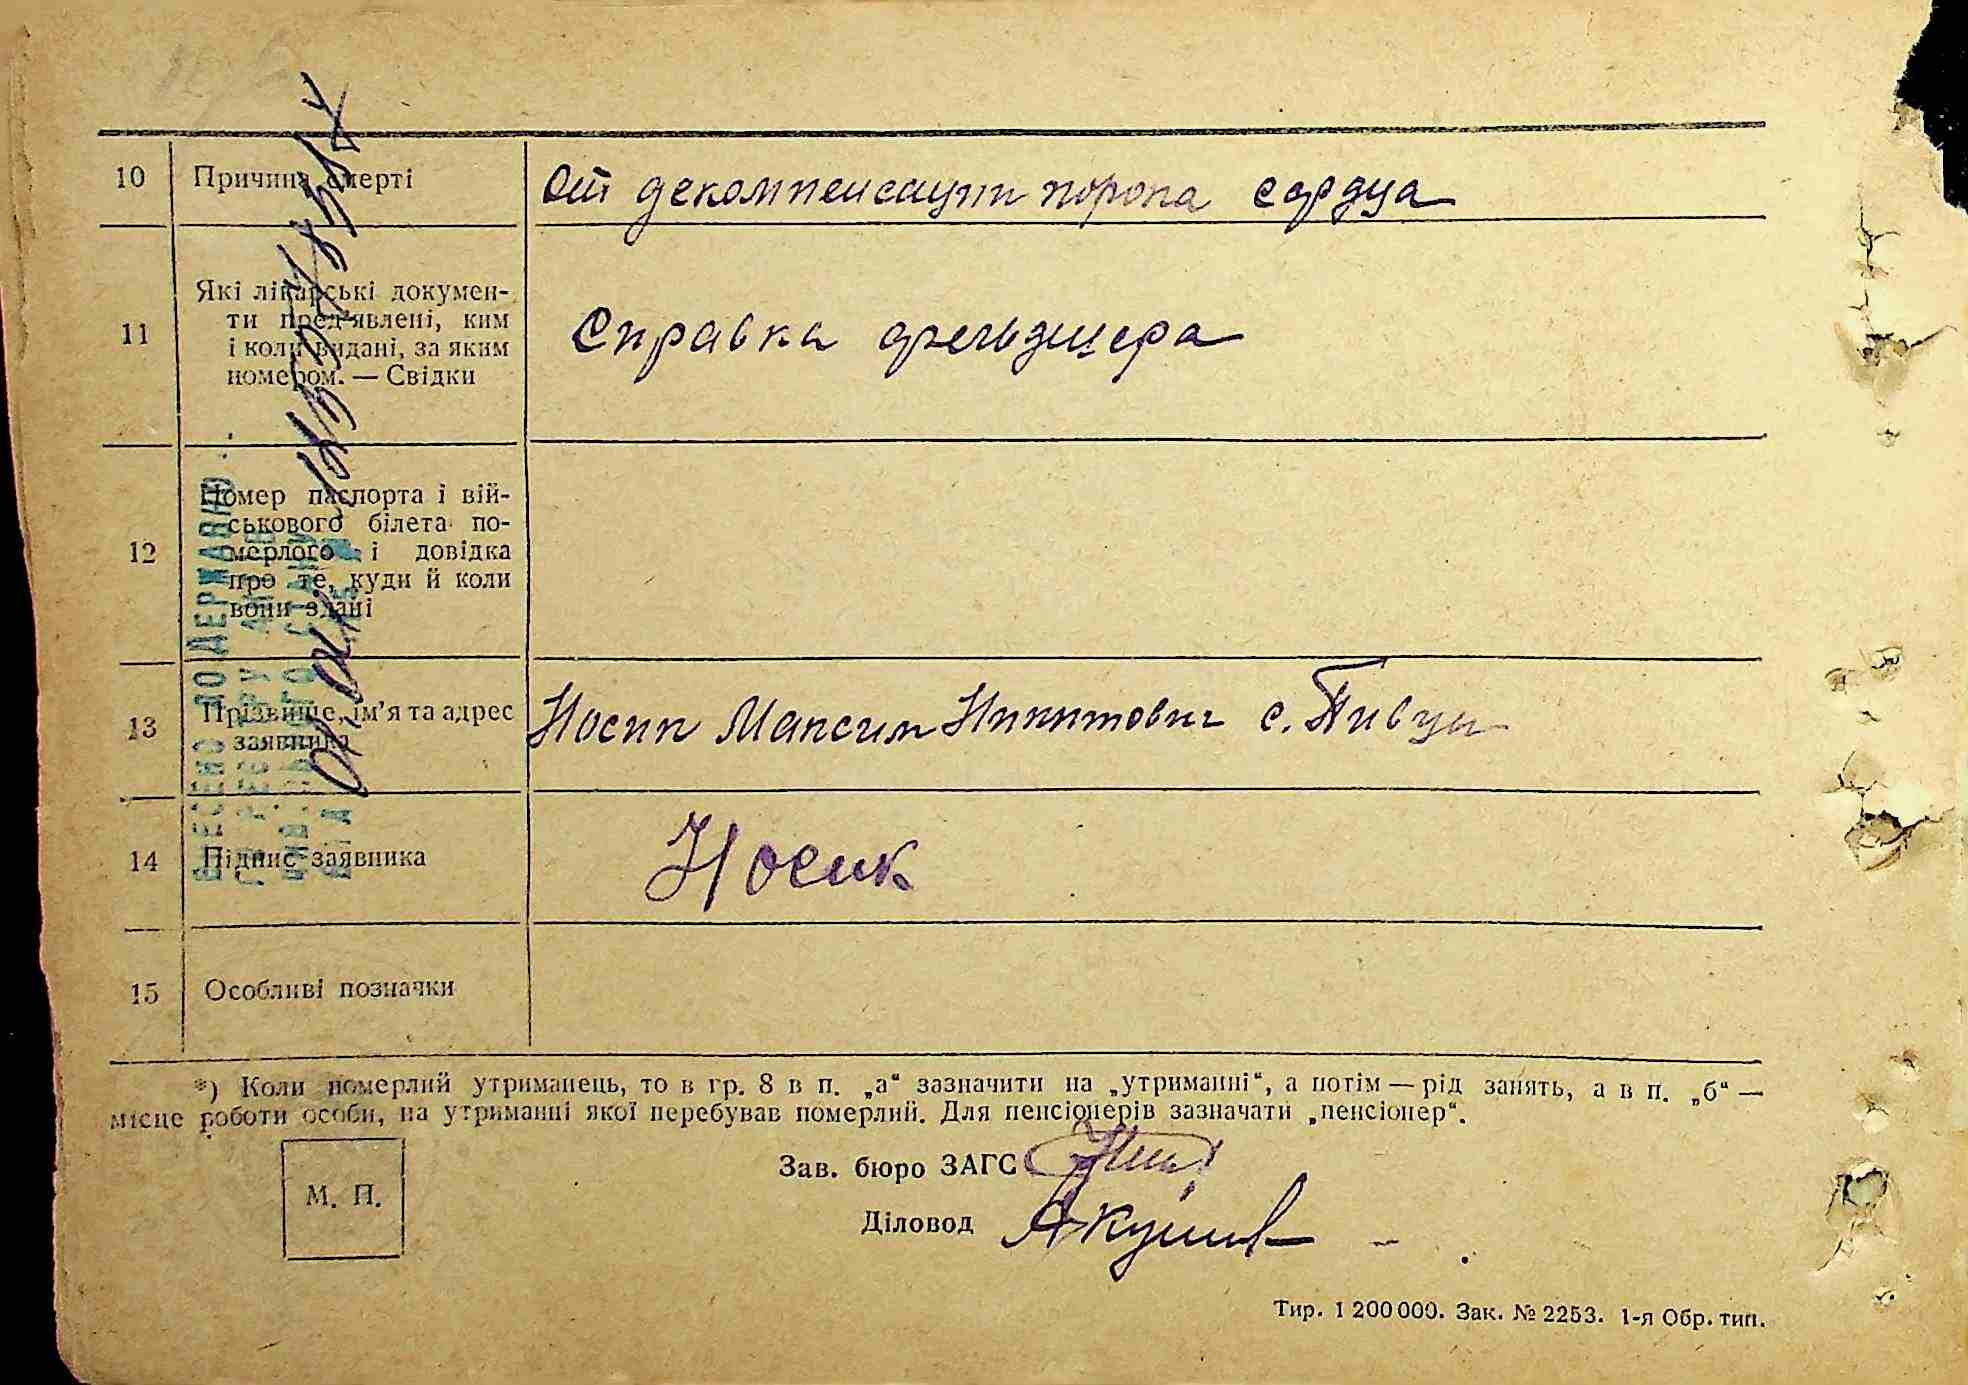 10 Причина смерті От декомпенсации порока сердца
11 Які лікарські докумен-
ти пред'явлені, ким
і коли видані, за яким
номером. — Свідки
Справка фельдшера
12 Номер паспорта і вій-
ськового білета по-
мерлого і довідка
про те, куди й коли
вони здані
13 Прізвище, ім'я та адрес
заявника
Носик Максим Никитович с. Пивци
14 Підпис заявника Носик
15 Особливі позначки
*) Коли померлий утриманець, то в гр. 8 в п. „а“ зазначити на „утриманні“, а потім — рід занять, а в п. „б“ —
місце роботи особи, на утриманні якої перебував померлий. Для пенсіонерів зазначати „пенсіонер“.
М. П.
Зав. бюро ЗАГС
Діловод
Тир. 1 200 000. Зак. № 2253. 1-я Обр. тип.
ВНЕСЕНО ДО ДЕРЖАВНОГО
РЕЄСТРУ АКТІВ
ЦИВІЛЬНОГО СТАНУ